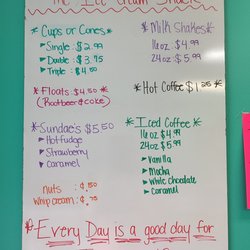 The Ice Cream Shack
* Cups or Cones *
Single: $2.99
Double: $3.75
Triple: $4.50
* Milk Shakes *
16oz $4.99
24oz $5.99
* Floats $4.50 *
(Rootbeer & Coke)
* Hot Coffee $1.25 *
Sundae's $5.50
Hot fudge
Strawberry
Caramel
nuts : ¢.50
whip cream : ¢.75
* Iced Coffee *
16oz $4.99
24oz $5.99
Vanilla
Mocha
White Chocolate
Caramel
Every Day is a good day for